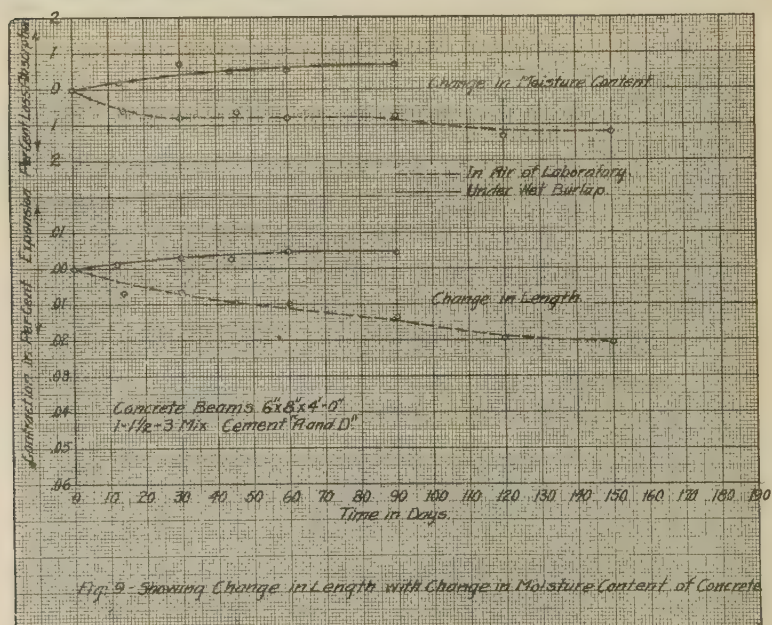 2
1
0
1
2
Per Cent Loss Absorption
Change in Moisture Content
In Air of Laboratory.
Under Wet Burlap.
.01
.00
.01
.02
.03
.04
.05
.06
Contraction in Per Cent Expansion
Change in Length.
Concrete Beams 6"x8"x4'-0"
1-1½-3 Mix Cement "A and D"
0 10 20 30 40 50 60 70 80 90 100 110 120 130 140 150 160 170 180 190
Time in Days.
Fig. 9 - Showing Change in Length with Change in Moisture Content of Concrete